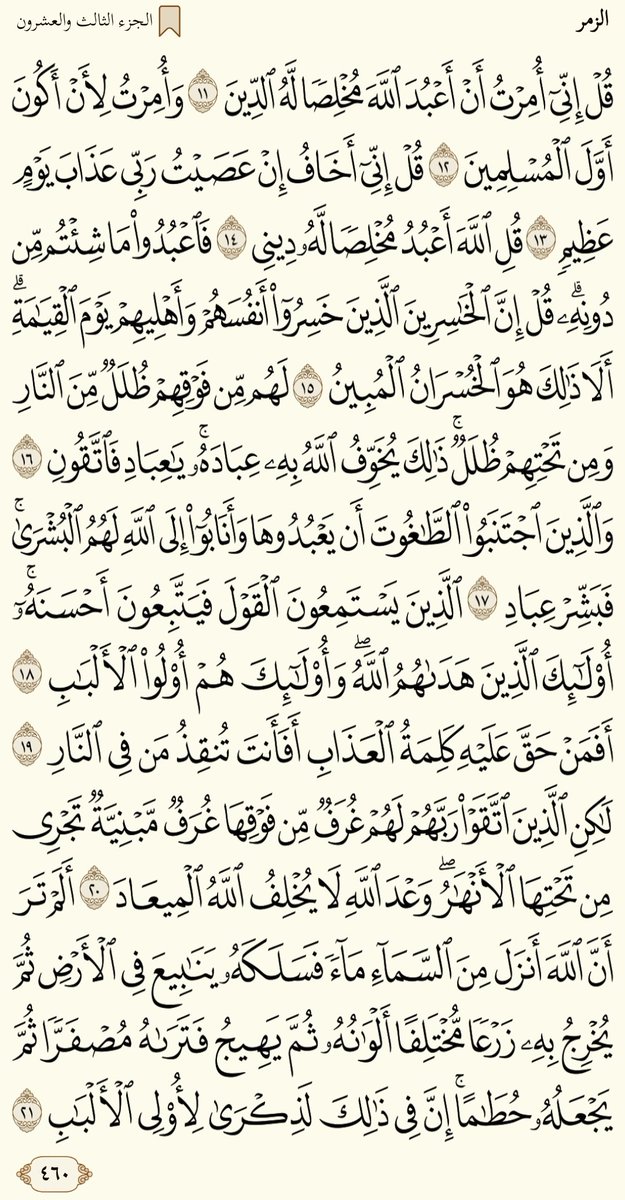 الزمر
الجزء الثالث والعشرون
قُلْ إِنِّيٓ أُمِرْتُ أَنْ أَعْبُدَ ٱللَّهَ مُخْلِصٗا لَّهُ ٱلدِّينَ ١١ وَأُمِرْتُ لِأَنْ أَكُونَ
أَوَّلَ ٱلْمُسْلِمِينَ ١٢ قُلْ إِنِّيٓ أَخَافُ إِنْ عَصَيْتُ رَبِّي عَذَابَ يَوْمٍ
عَظِيمٖ ١٣ قُلِ ٱللَّهَ أَعْبُدُ مُخْلِصٗا لَّهُۥ دِينِي ١٤ فَٱعْبُدُوا۟ مَا شِئْتُم مِّن
دُونِهِۦۗ قُلْ إِنَّ ٱلْخَٰسِرِينَ ٱلَّذِينَ خَسِرُوٓا۟ أَنفُسَهُمْ وَأَهْلِيهِمْ يَوْمَ ٱلْقِيَٰمَةِۗ
أَلَا ذَٰلِكَ هُوَ ٱلْخُسْرَانُ ٱلْمُبِينُ ١٥ لَهُم مِّن فَوْقِهِمْ ظُلَلٞ مِّنَ ٱلنَّارِ
وَمِن تَحْتِهِمْ ظُلَلٞۚ ذَٰلِكَ يُخَوِّفُ ٱللَّهُ بِهِۦ عِبَادَهُۥۚ يَٰعِبَادِ فَٱتَّقُونِ ١٦
وَٱلَّذِينَ ٱجْتَنَبُوا۟ ٱلطَّٰغُوتَ أَن يَعْبُدُوهَا وَأَنَابُوٓا۟ إِلَى ٱللَّهِ لَهُمُ ٱلْبُشْرَىٰۚ
فَبَشِّرْ عِبَادِ ١٧ ٱلَّذِينَ يَسْتَمِعُونَ ٱلْقَوْلَ فَيَتَّبِعُونَ أَحْسَنَهُۥٓۚ
أُو۟لَٰٓئِكَ ٱلَّذِينَ هَدَىٰهُمُ ٱللَّهُۖ وَأُو۟لَٰٓئِكَ هُمْ أُو۟لُوا۟ ٱلْأَلْبَٰبِ ١٨
أَفَمَنْ حَقَّ عَلَيْهِ كَلِمَةُ ٱلْعَذَابِ أَفَأَنتَ تُنقِذُ مَن فِي ٱلنَّارِ ١٩
لَٰكِنِ ٱلَّذِينَ ٱتَّقَوْا۟ رَبَّهُمْ لَهُمْ غُرَفٞ مِّن فَوْقِهَا غُرَفٞ مَّبْنِيَّةٞ تَجْرِي
مِن تَحْتِهَا ٱلْأَنْهَٰرُۖ وَعْدَ ٱللَّهِ لَا يُخْلِفُ ٱللَّهُ ٱلْمِيعَادَ ٢٠ أَلَمْ تَرَ
أَنَّ ٱللَّهَ أَنزَلَ مِنَ ٱلسَّمَآءِ مَآءٗ فَسَلَكَهُۥ يَنَٰبِيعَ فِي ٱلْأَرْضِ ثُمَّ
يُخْرِجُ بِهِۦ زَرْعٗا مُّخْتَلِفًا أَلْوَٰنُهُۥ ثُمَّ يَهِيجُ فَتَرَىٰهُ مُصْفَرّٗا ثُمَّ
يَجْعَلُهُۥ حُطَٰمًاۚ إِنَّ فِي ذَٰلِكَ لَذِكْرَىٰ لِأُو۟لِي ٱلْأَلْبَٰبِ ٢١
٤٦٠